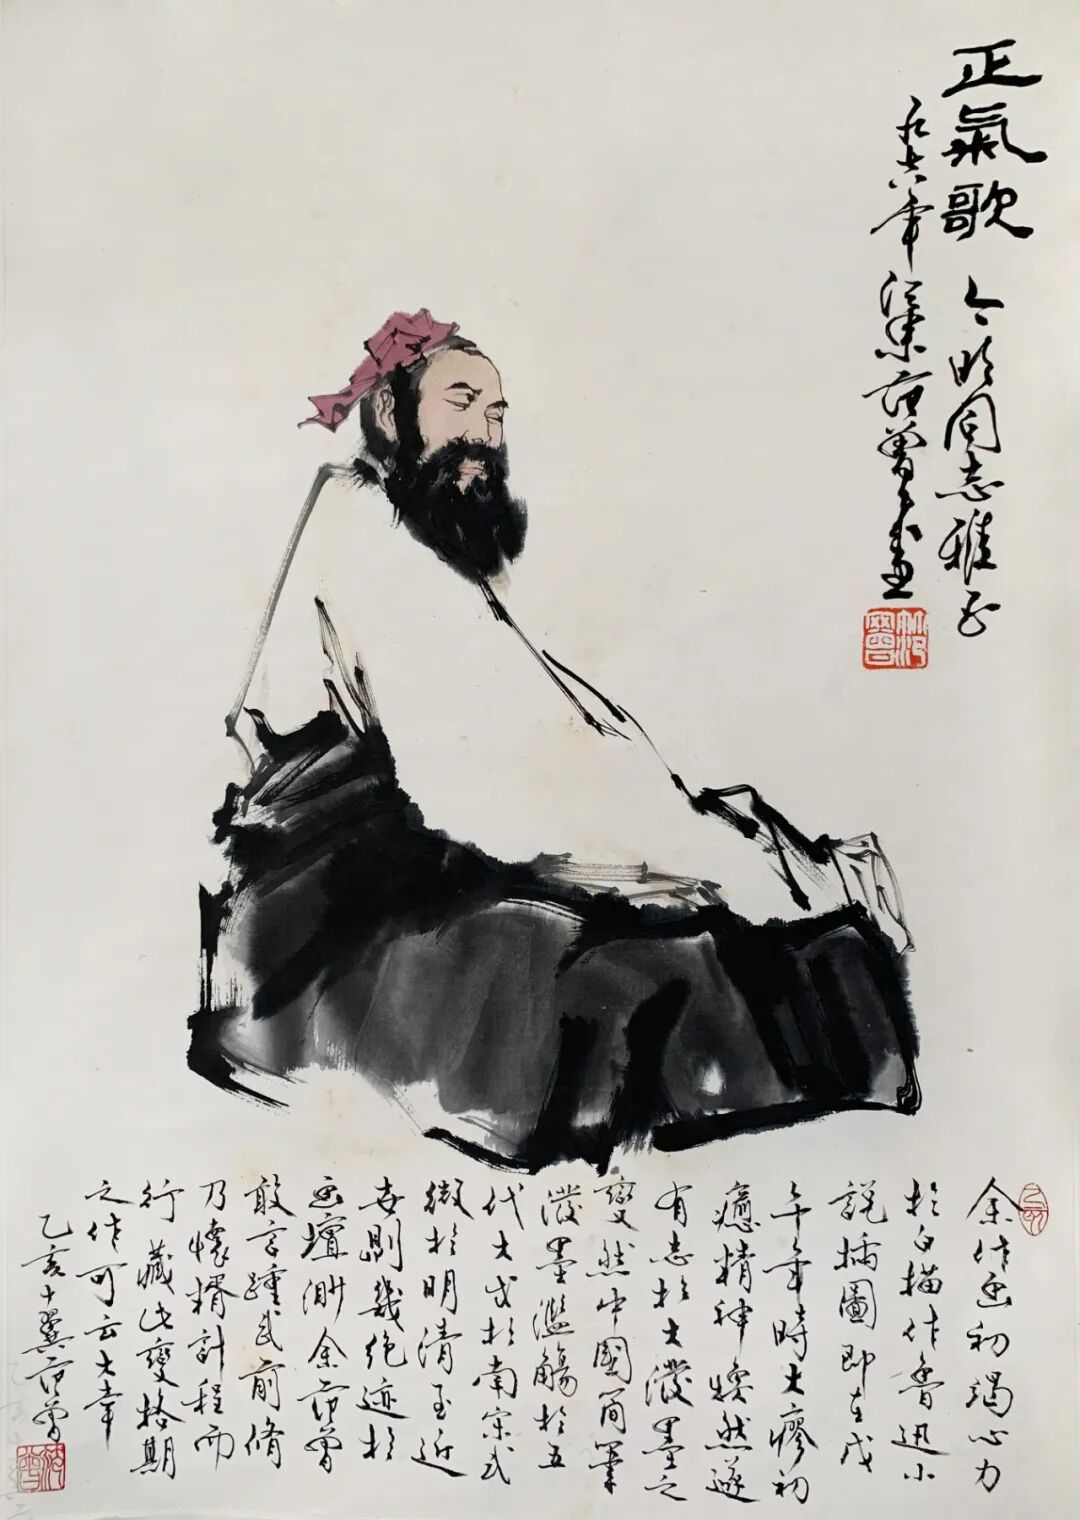 正氣歌 同志雅正
年江東范曾畫
余作画初竭心力
於白描作魯迅小
說插圖即在戊
午年時大瘳初
癒精神煥然遂
有志於大潑墨之
變然中國簡筆
潑墨濫觴於五
代大成於南宋式
微於明清至近
世則幾絕迹於
画壇渺余范曾
敢言踵武前脩
乃懷計程而
行藏此變格期
之作可云大幸
乙亥十翼范曾